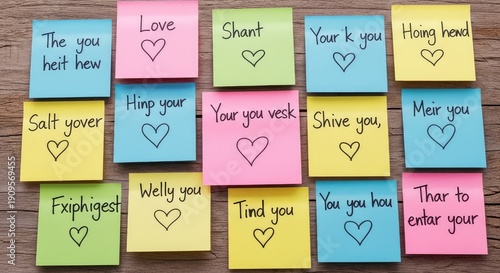 The you
heit hew
Love
Shant
Your k you
Hoing hend
Salt yover
Hinp your
Your you vesk
Shive you,
Meir you
Fxiphigest
Welly you
Tind you
You you hou
Thar to
entar your